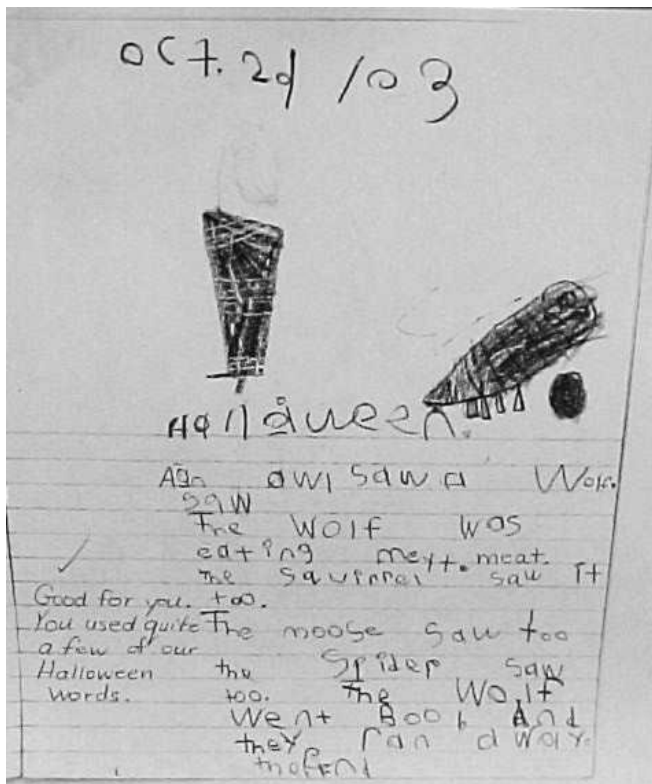 OCT. 2d /03
Hallaween.
Aan owl saw a Wolf.
saw
The Wolf was
eating meyt. meat.
the squirrel saw it
too.
The moose saw too
the spider saw
too. The Wolf
Went Boo And
they ran away.
the End
✓
Good for you.
You used quite
a few of our
Halloween
words.